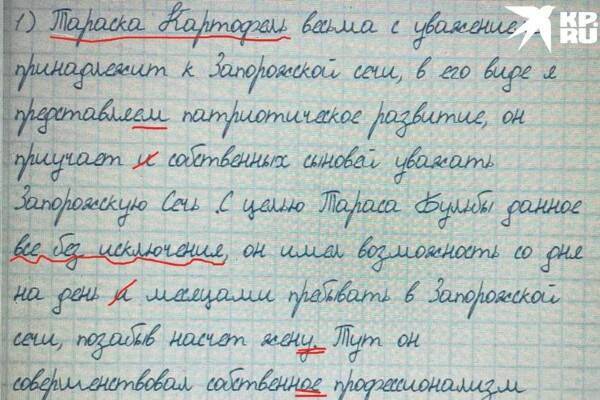 1) Тараска Картофель весьма с уважением
принадлежит к Запорожской сечи, в его виде я
представляем патриотическое развитие, он
приучает и собственных сыновей уважать
Запорожскую Сечь. С целью Тараса Бульбы данное
все без исключения, он имел возможность со дня
на день и месяцами пребывать в Запорожской
сечи, позабыв насчет жену. Тут он
совершенствовал собственное профессионализм
KP.
RU